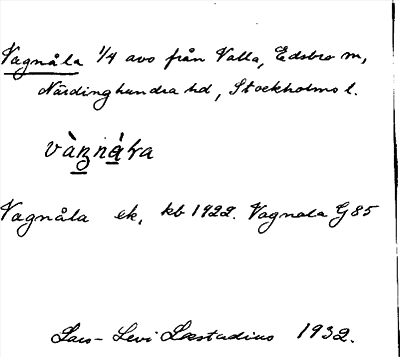 Vagnåla 1/4 avs från Valla, Edsbro sn,
Närdinghundra hd, Stockholms l.
Vagnåla ek, kb 1922. Vagnala G 85
Lars-Levi Læstadius 1932.